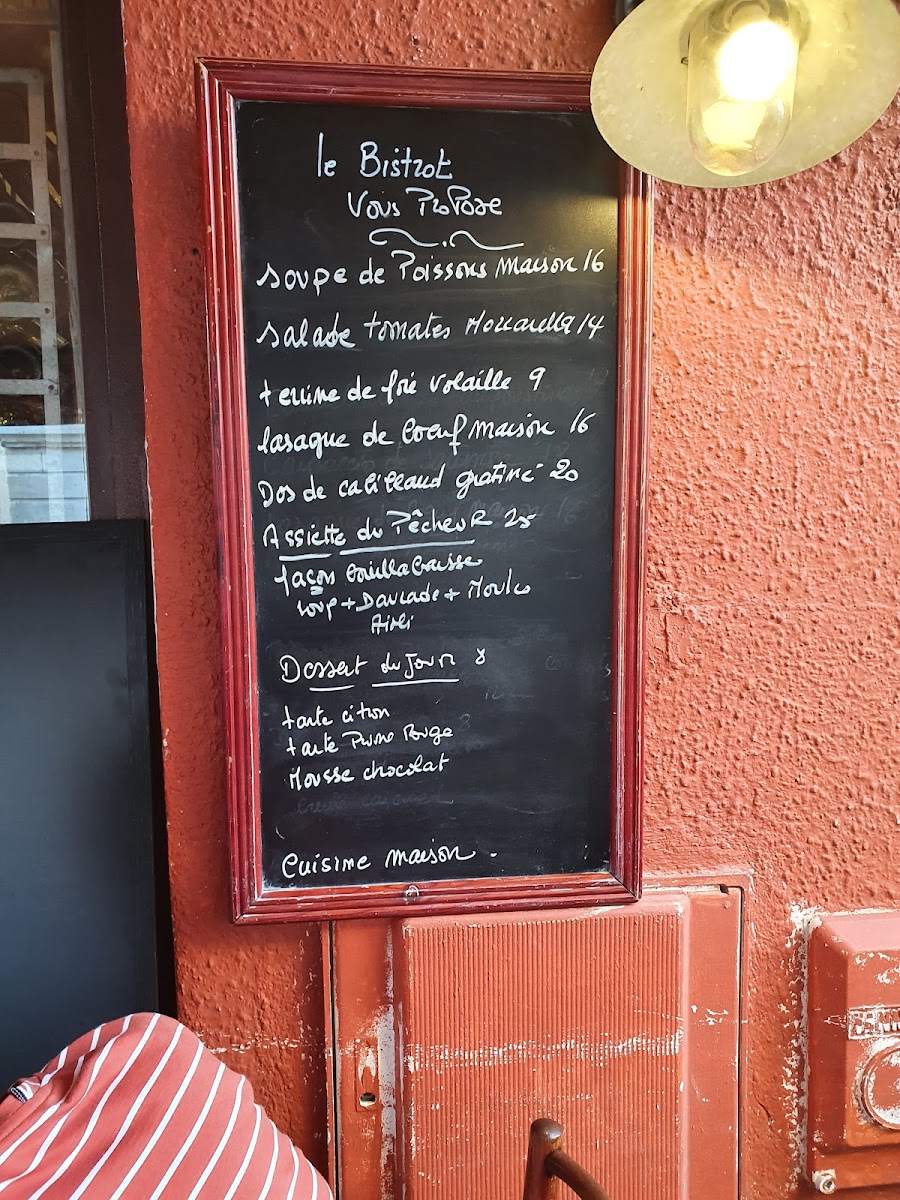 le Bistrot
Vous Propose
soupe de Poissons Maison 16
salade tomates Mozzarella 14
terrine de foie volaille 9
lasagne de boeuf maison 16
Dos de cabillaud gratiné 20
Assiette du Pêcheur 25
façon bouillabaisse
loup + Daurade + Moules
Aïoli
Dessert du Jour 8
tarte citron
tarte Prune Rouge
Mousse chocolat
Cuisine maison.